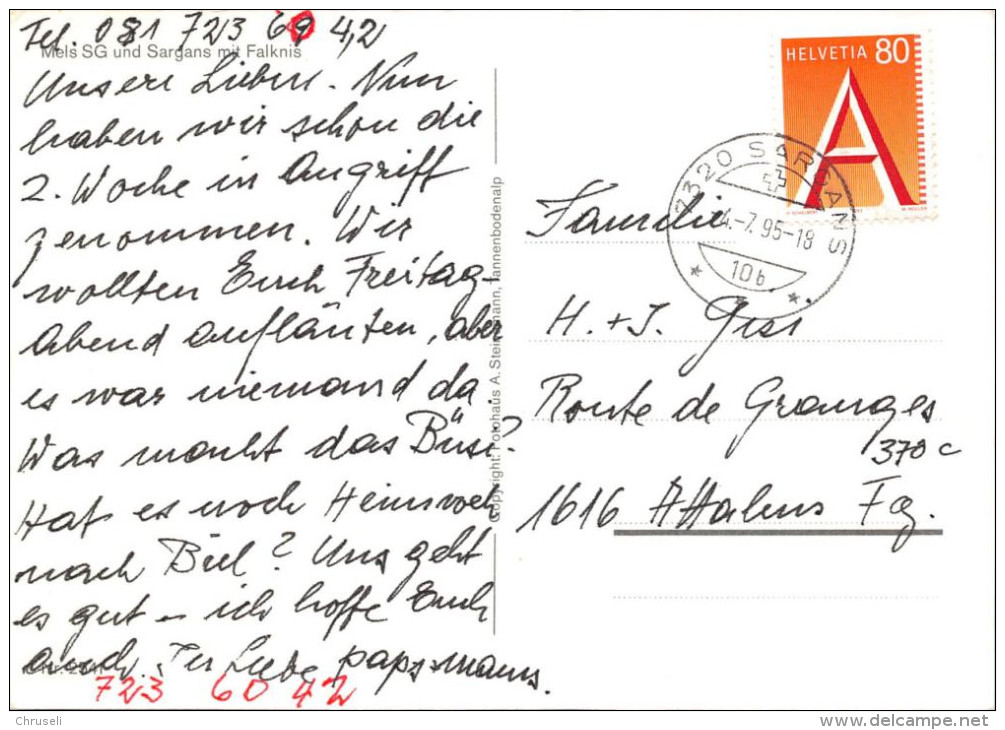 Tel. 081 723 60 42
Mels SG und Sargans mit Falknis
Unsere Lieben. Nun
haben wir schon die
2. Woche in Angriff
genommen. Wir
wollten Euch Freitag-
abend aufläuten, aber
es war niemand da.
Was macht das Büsi?
Hat es noch Heimweh
nach Biel? Uns geht
es gut – ich hoffe Euch
auch. In Liebe, paps + mams.
723 60 42
Copyright: Fotohaus A. Steinemann, Tannenbodenalp
HELVETIA 80
A
7320 SARGANS
4.-7.95-18
10b
Familie
H. + J. Gisi
Route de Granges
370 c
1616 Attalens Fg.
Chruseli
www.delcampe.net